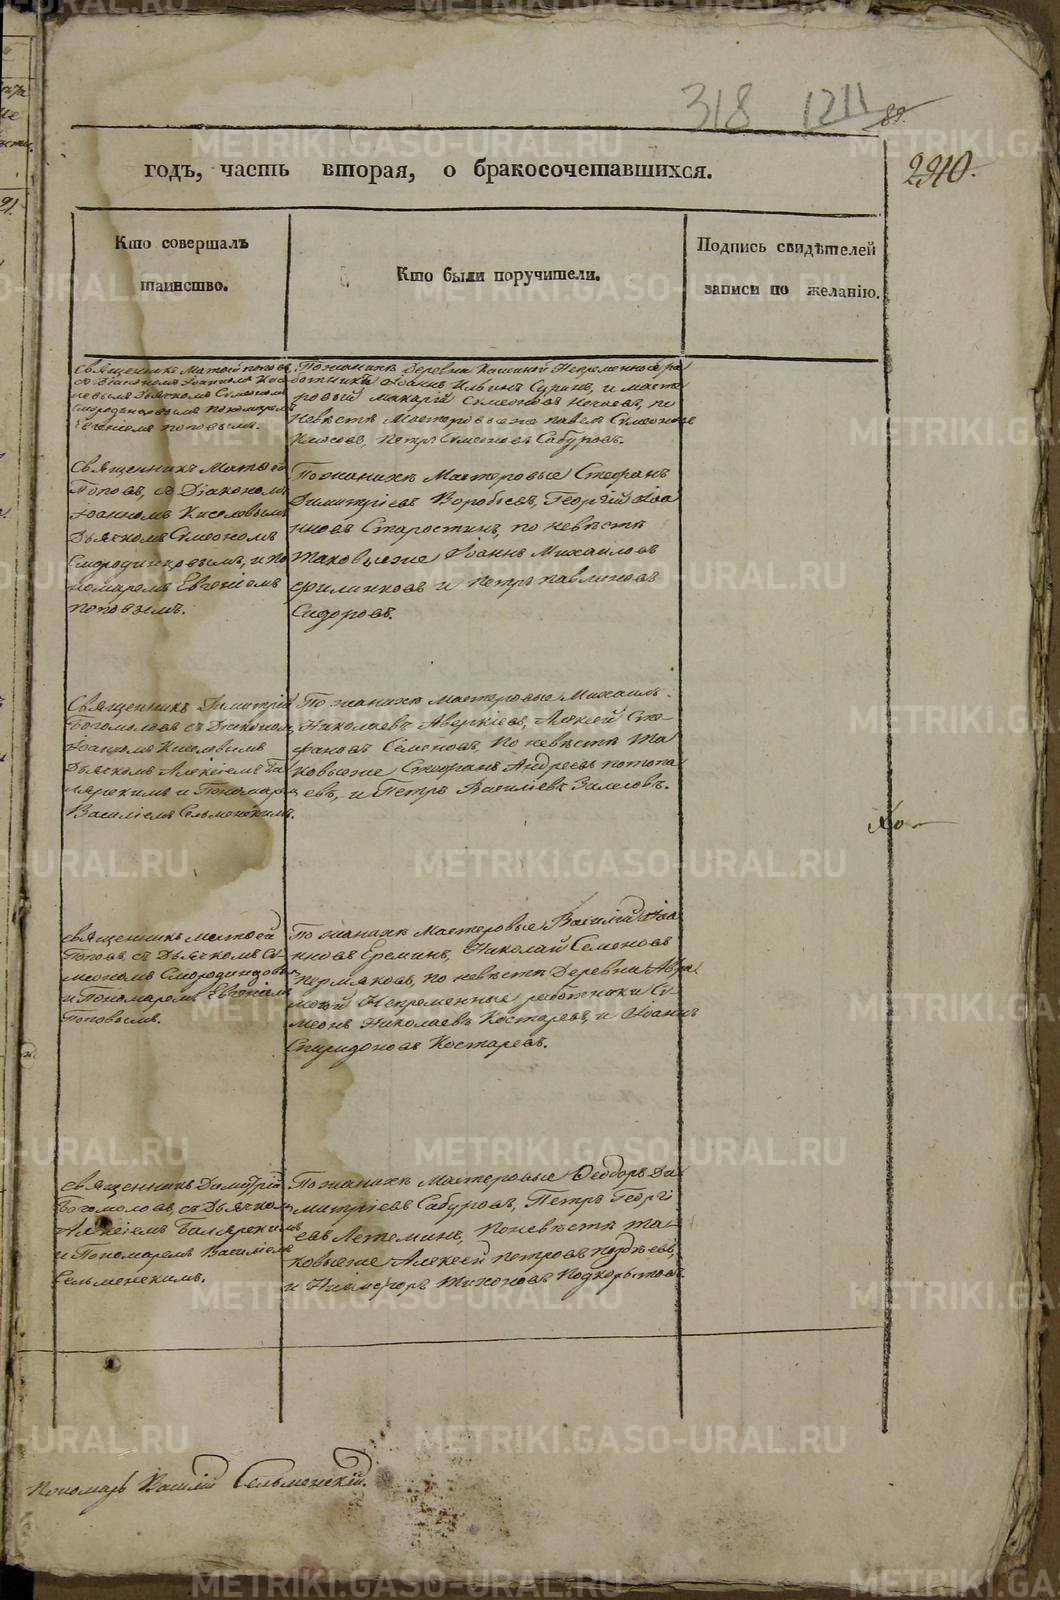 318 1211 89.
2910.
годъ, часть вторая, о бракосочетавшихся.
Кто совершалъ
таинство.
Кто были поручители.
Подпись свидѣтелей
записи по желанію.
Священникъ Матѳей Поповъ
съ Діакономъ Іоанномъ Кисе
левымъ Дьячкомъ Симеономъ
Смородинцовымъ Пономаремъ
Евгеніемъ Поповымъ.
По женихѣ деревни Кашиной Непременной ра
ботникъ Іоаннъ Ильинъ Суринъ, и масте
ровый Макарій Симеоновъ Нечаевъ, по
невѣстѣ Мастеровые Павелъ Симеоновъ
Петръ Симеоновъ Сабуровъ.
Священникъ Матѳей
Поповъ, съ Діакономъ
Іоанномъ Киселевымъ
Дьячкомъ Симеономъ
Смородинцовымъ, и По
номаремъ Евгеніемъ
Поповымъ.
По женихѣ Мастеровые Стефанъ
Димитріевъ Воробьевъ, Георгій Іоа
нновъ Старостинъ, по невѣстѣ
таковыеже Іоаннъ Михаиловъ
Филинковъ и Петръ Павлиновъ
Сидоровъ.
Священникъ Димитрій
Богомоловъ съ Діакономъ
Іоанномъ Киселевымъ
Дьячкомъ Алексіемъ Ба
лярскимъ и Пономаремъ
Василіемъ Сельменскимъ.
По женихѣ мастеровые Михаилъ
Николаевъ Аверкіевъ, Алексей Сте-
фановъ Семеновъ, По невѣстѣ та
ковыеже Стефанъ Андреевъ Потопа
евъ, и Петръ Василіевъ Залесовъ.
Священникъ Матѳей
Поповъ, съ Дьячкомъ Си
меономъ Смородинцовымъ
и Пономаремъ Евгеніемъ
Поповымъ.
По женихѣ мастеровые Василій Іоа
нновъ Ереминъ, Николай Семеновъ
Пермяковъ, по невѣстѣ Деревни Авра
мовой Непременные работники Си
меонъ Николаевъ Костаревъ, и Іоаннъ
Спиридоновъ Костаревъ.
Священникъ Димитрій
Богомоловъ, съ Дьячкомъ
Алексіемъ Балярскимъ
и Пономаремъ Василіемъ
Сельменскимъ.
По женихѣ Мастеровые Ѳеодоръ Ди
митріевъ Сабуровъ, Петръ Георгі
евъ Летеминъ, По невѣстѣ та
ковыеже Алексей Петровъ Поздѣевъ,
и Никифоръ Тихоновъ Подкорытовъ.
Пономарь Василій Сельменскій.
METRIKI.GASO-URAL.RU